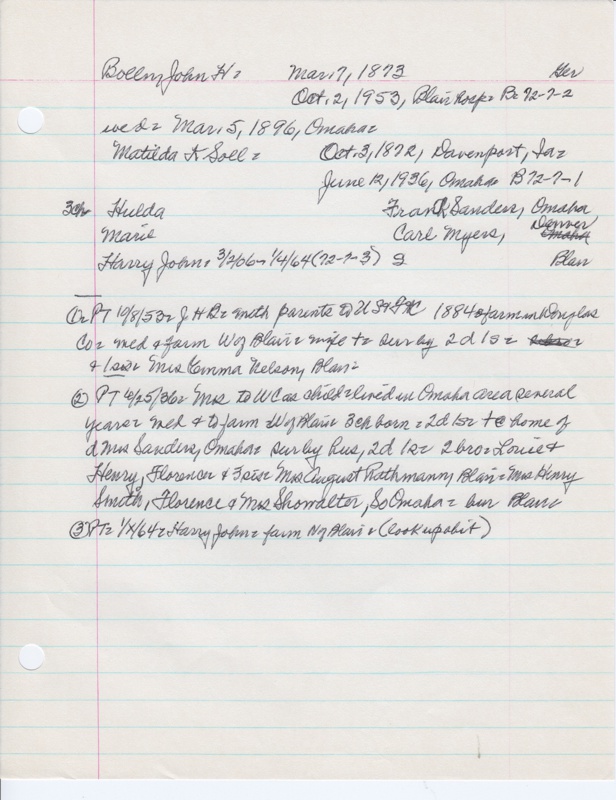 Bolln, John H= Mar. 7, 1873 Ger
Oct. 2, 1953, Blair Hosp= B= 72-7-2
wed= Mar. 5, 1896, Omaha=
Matilda A Soll= Oct. 3, 1872, Davenport, Ia=
June 12, 1936, Omaha= B 72-7-1
3ch Hulda Frank Sanders, Omaha
Marie Carl Myers, Denver
Harry John= 3/2/06= 1/4/64 (72-7-3) Blair
① PT 10/8/53= J H B= with parents to U S 1884 & farm in Douglas
Co= wed & farm W of Blair= wife = sur by 2d 1s=
& 1 sis= Mrs Emma Nelson, Blair=
② PT 6/25/36= Mrs to WC as child= lived in Omaha area several
years= wed & to farm W of Blair= 3ch born= 2d 1s= home of
d Mrs Sanders, Omaha= sur by hus, 2d 1s= 2 bro= Louie &
Henry, Florence= & 3 sis= Mrs August Rathmann, Blair= Mrs Henry
Smith, Florence & Mrs Showalter, So Omaha= bur Blair=
③ PT= 1/ /64= Harry John= farm N of Blair= (look up obit)